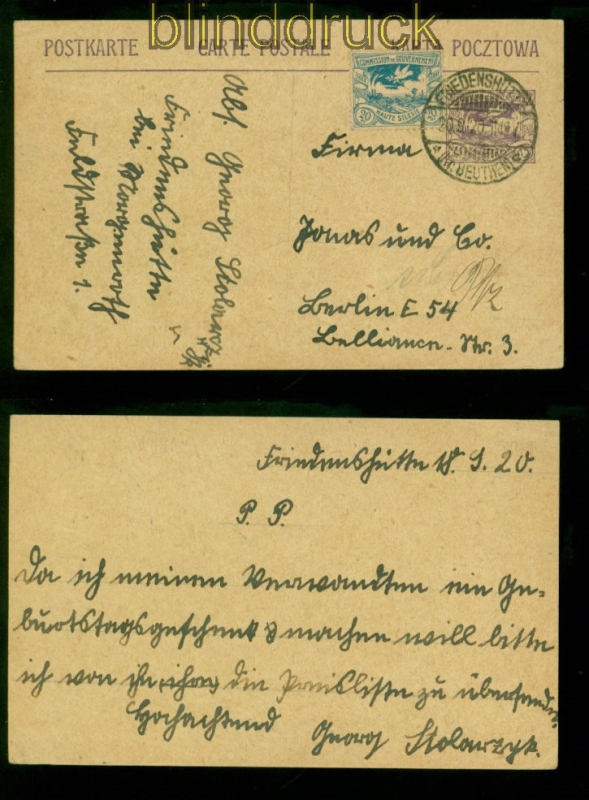 blinddruck
POSTKARTE CARTE POSTALE KARTA POCZTOWA
COMMISSION DE GOUVERNEMENT
20 20
HAUTE SILÉSIE
FRIEDENSHÜTTE
(KR. BEUTHEN)
Abs. Georg Stolarzyk
Friedenshütte
bei Morgenroth
Feldstraße 1.
Firma
Jonas und Co.
Berlin E 54
Belliance-Str. 3.
Friedenshütte 18. 9. 20.
P. P.
Da ich meinen Verwandten ein Ge-
burtstagsgeschenk machen will bitte
ich von ihr ihren die Preisliste zu übersenden.
Hochachtend
Georg Stolarzyk.